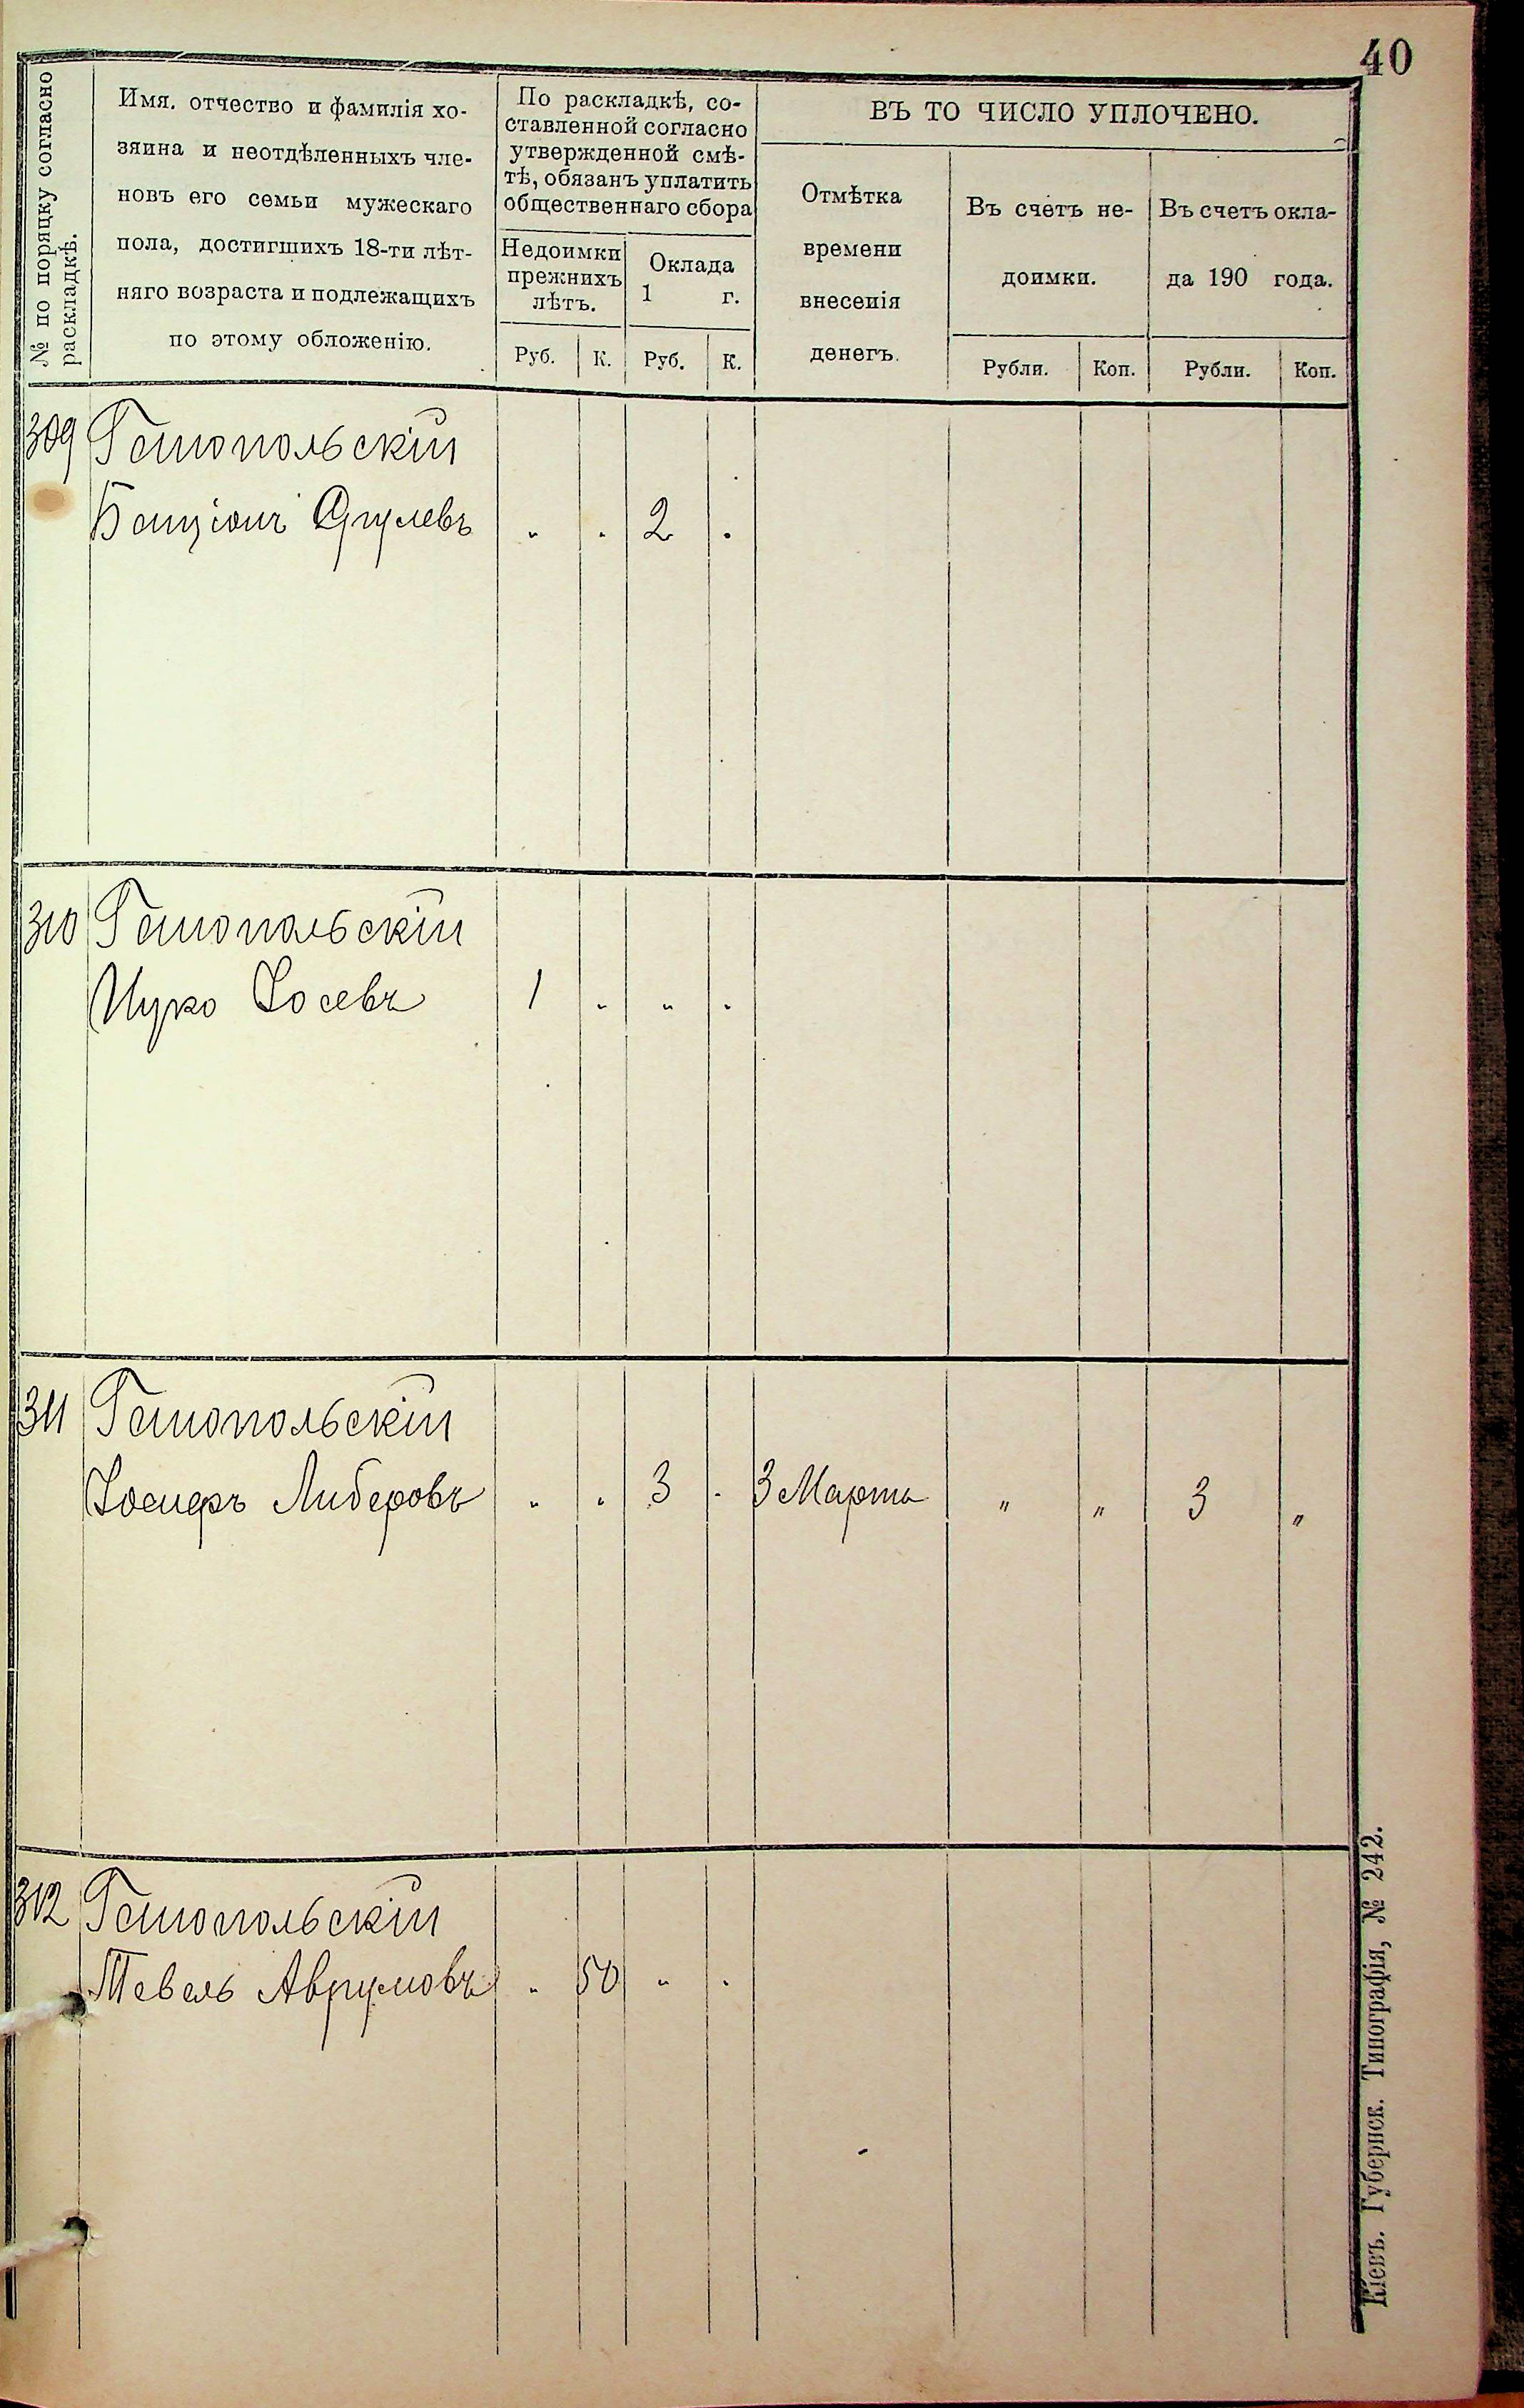 40
№ по поряцку согласно
раскладкѣ.
Имя. отчество и фамилія хо-
зяина и неотдѣленныхъ чле-
новъ его семьи мужескаго
пола, достигшихъ 18-ти лѣт-
няго возраста и подлежащихъ
по этому обложенію.
По раскладкѣ, со-
ставленной согласно
утвержденной смѣ-
тѣ, обязанъ уплатить
общественнаго сбора
Недоимки
прежнихъ
лѣтъ.
Оклада
1 г.
Руб. К. Руб. К.
ВЪ ТО ЧИСЛО УПЛОЧЕНО.
Отмѣтка
времени
внесенія
денегъ.
Въ счетъ не-
доимки.
Въ счетъ окла-
да 190 года.
Рубли. Коп. Рубли. Коп.
309 Гайопольскій
Банціонъ Срулевъ " " 2 "
310 Гайопольскій
Ицко Іосевъ 1 " " "
311 Гайопольскій
Іосифъ Либеровъ " " 3 " 3 Марта " " 3 "
312 Гайопольскій
Тевель Аврумовъ " 50 " "
Кіевъ. Губернск. Типографія, № 242.